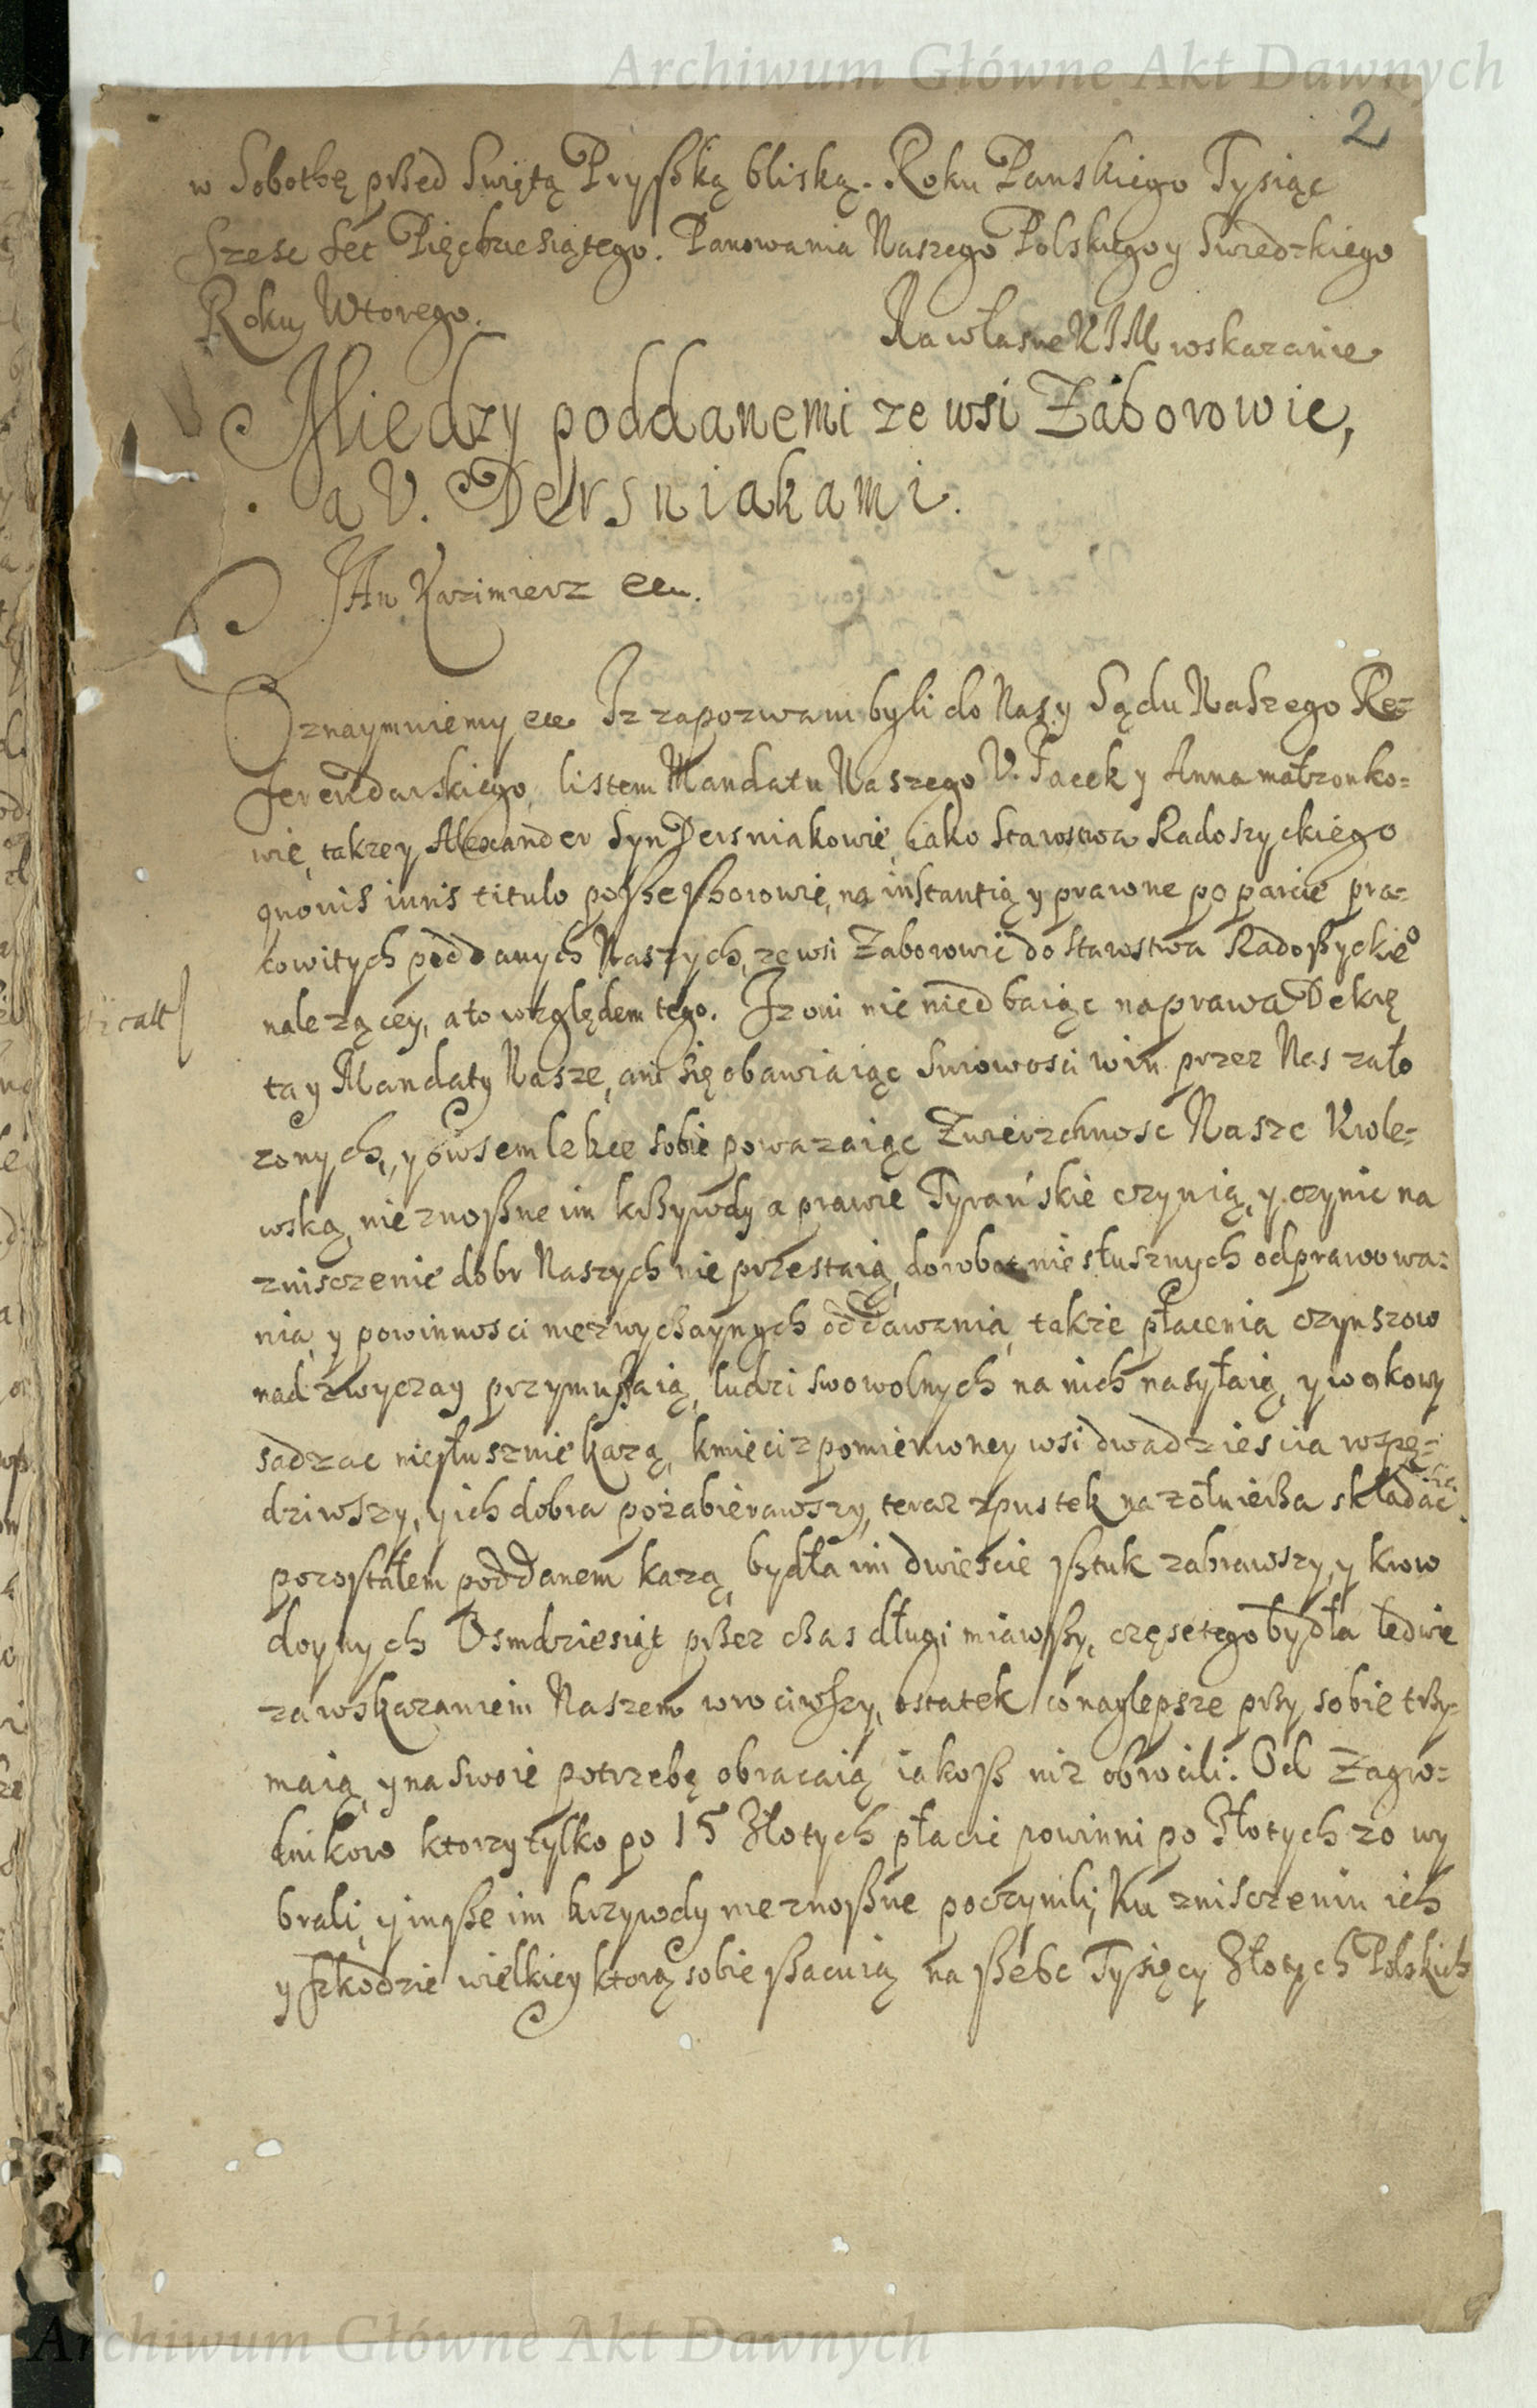 Archiwum Główne Akt Dawnych
2
w Sobothę przed Swiętą Pryszką bliską. Roku Panskiego Tysiąc
Szesc Set Pięcdziesiątego. Panowania Naszego Polskiego y Swedzkiego
Roku Wtorego.
Na własne KJM wskazanie
Między poddanemi ze wsi Zaborowic,
a U. Dersniakami.
JAn Kazimierz etc.
Oznaymuiemy etc. Iz zapozwani byli do Nas y Sądu Naszego Re=
ferendarskiego, listem Mandatu Naszego U. Jacek y Anna małzonko=
wie, takze y Alexander Syn Dersniakowie, iako Starostwa Radoszyckiego
quovis iuris titulo possessorowie, na instantią y prawne poparcie pra=
cowitych poddanych Naszych, ze wsi Zaborowic do Starostwa Radoszyckieº
nalezącey, a to względem tego. Iz oni nie nied baiąc na prawa Dekre
ta y Mandaty Nasze, ani się obawiaiąc Surowosci win przez Nas zało
zonych, y owsem lekce sobie powazaiąc Zwierzchnosc Nasze Krole=
wską, nieznoszne im krzywdy a prawie Tyrańskie czynią, y czynic na
zniszczenie dobr Naszych nie przestaią, do robot nie słusznych odprawowa=
nia, y powinnosci niezwychaynych oddawania, takze płacenia czynszow
nad zwyczay przymuszaią, ludzi swowolnych na nich nasyłaią, y w okowy
sadzac niesłusznie karzą, kmieci z pomienioney wsi dwadziescia wzpę=
dziwszy, y ich dobra pozabierawszy, teraz z pustek na zołnierza składac
pozostałem poddanem kazą, bydła im dwiescie sztuk zabrawszy, y krow
doynych Osmdziesiąt przez czas długi miawszy, częsc tego bydła ledwie
za wskazaniem Naszem wrociwszy, ostatek co naylepsze przy sobie trzy=
maią, y na swoie potrzebę obracaią iakosz niz obrocili. Od Zagro=
dnikow ktorzy tylko po 15 Złotych płacic powinni po Złotych 20 wy
brali, y insze im krzywdy nieznoszne poczynili, Ku zniszczeniu ich
y szkodzie wielkiey ktorą sobie szacuią na szesc Tysięcy Złotych Polskich
Archiwum Główne Akt Dawnych